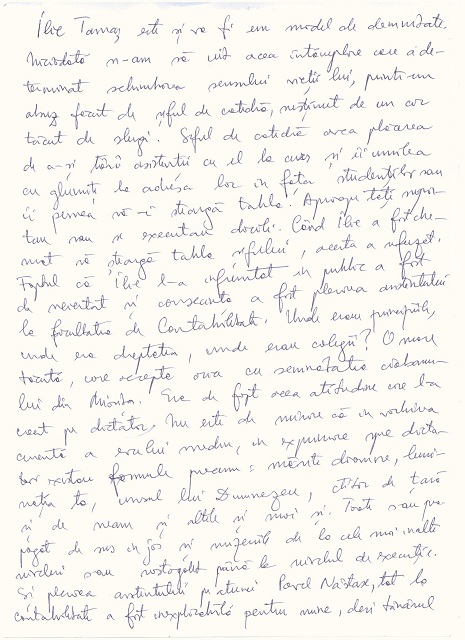 Ilie Tamaș este și va fi un model de demnitate.
Niciodată n-am să uit acea întâmplare care a de-
terminat schimbarea sensului vieții lui, printr-un
abuz făcut de șeful de catedră, susținut de un cor
tăcut de slugi. Șeful de catedră avea plăcerea
de a-și târî asistenții cu el la curs și îi umilea
cu glumițe la adresa lor în fața studenților sau
îi punea să-i șteargă tabla. Aproape toți
sau se executau docili. Când Ilie a fost che-
mat să șteargă tabla șefului, acesta a refuzat.
Faptul că Ilie l-a înfruntat în public a fost
de neiertat și consecința a fost plecarea asistentului
la facultatea de Contabilitate. Unde erau principiile,
unde era dreptatea, unde erau colegii? O masă
toantă, care accepta orice cu seninătatea
lui din Miorița. Era de fapt acea atitudine care l-a
creat pe dictator. Nu este de mirare că în
a evului mediu, în expunere spre dicta-
tor existau formule precum: mărite doamne, lumi-
năția ta, unsul lui Dumnezeu, ctitor de țară
și de neam și altele și mai și. Toate s-au
de sus în jos și mizeriile de la cele mai înalte
niveluri s-au rostogolit până la nivelul de execuție.
Și plecarea asistentului pe atunci Pavel Năstase, tot la
contabilitate a fost inexplicabilă pentru mine, deși tânărul